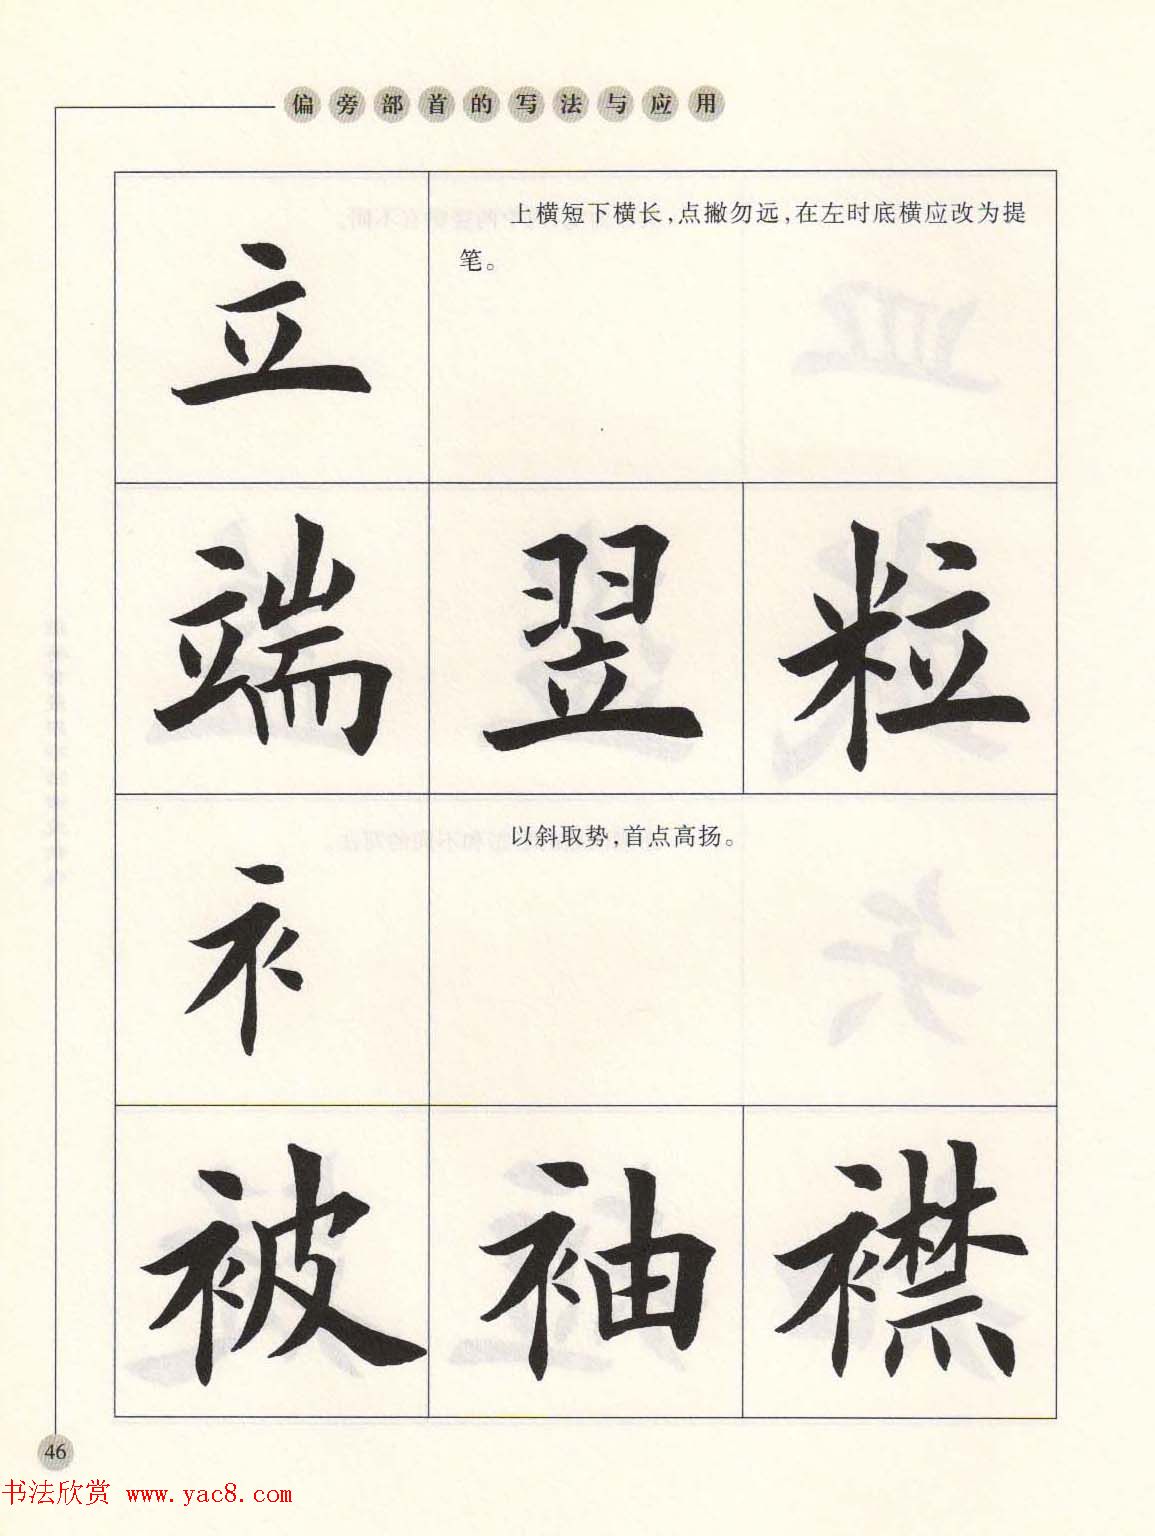 偏旁部首的写法与应用
立
上横短下横长，点撇勿远，在左时底横应改为提
笔。
端 翌 粒
衤
以斜取势，首点高扬。
被 袖 襟
46
书法欣赏 www.yac8.com